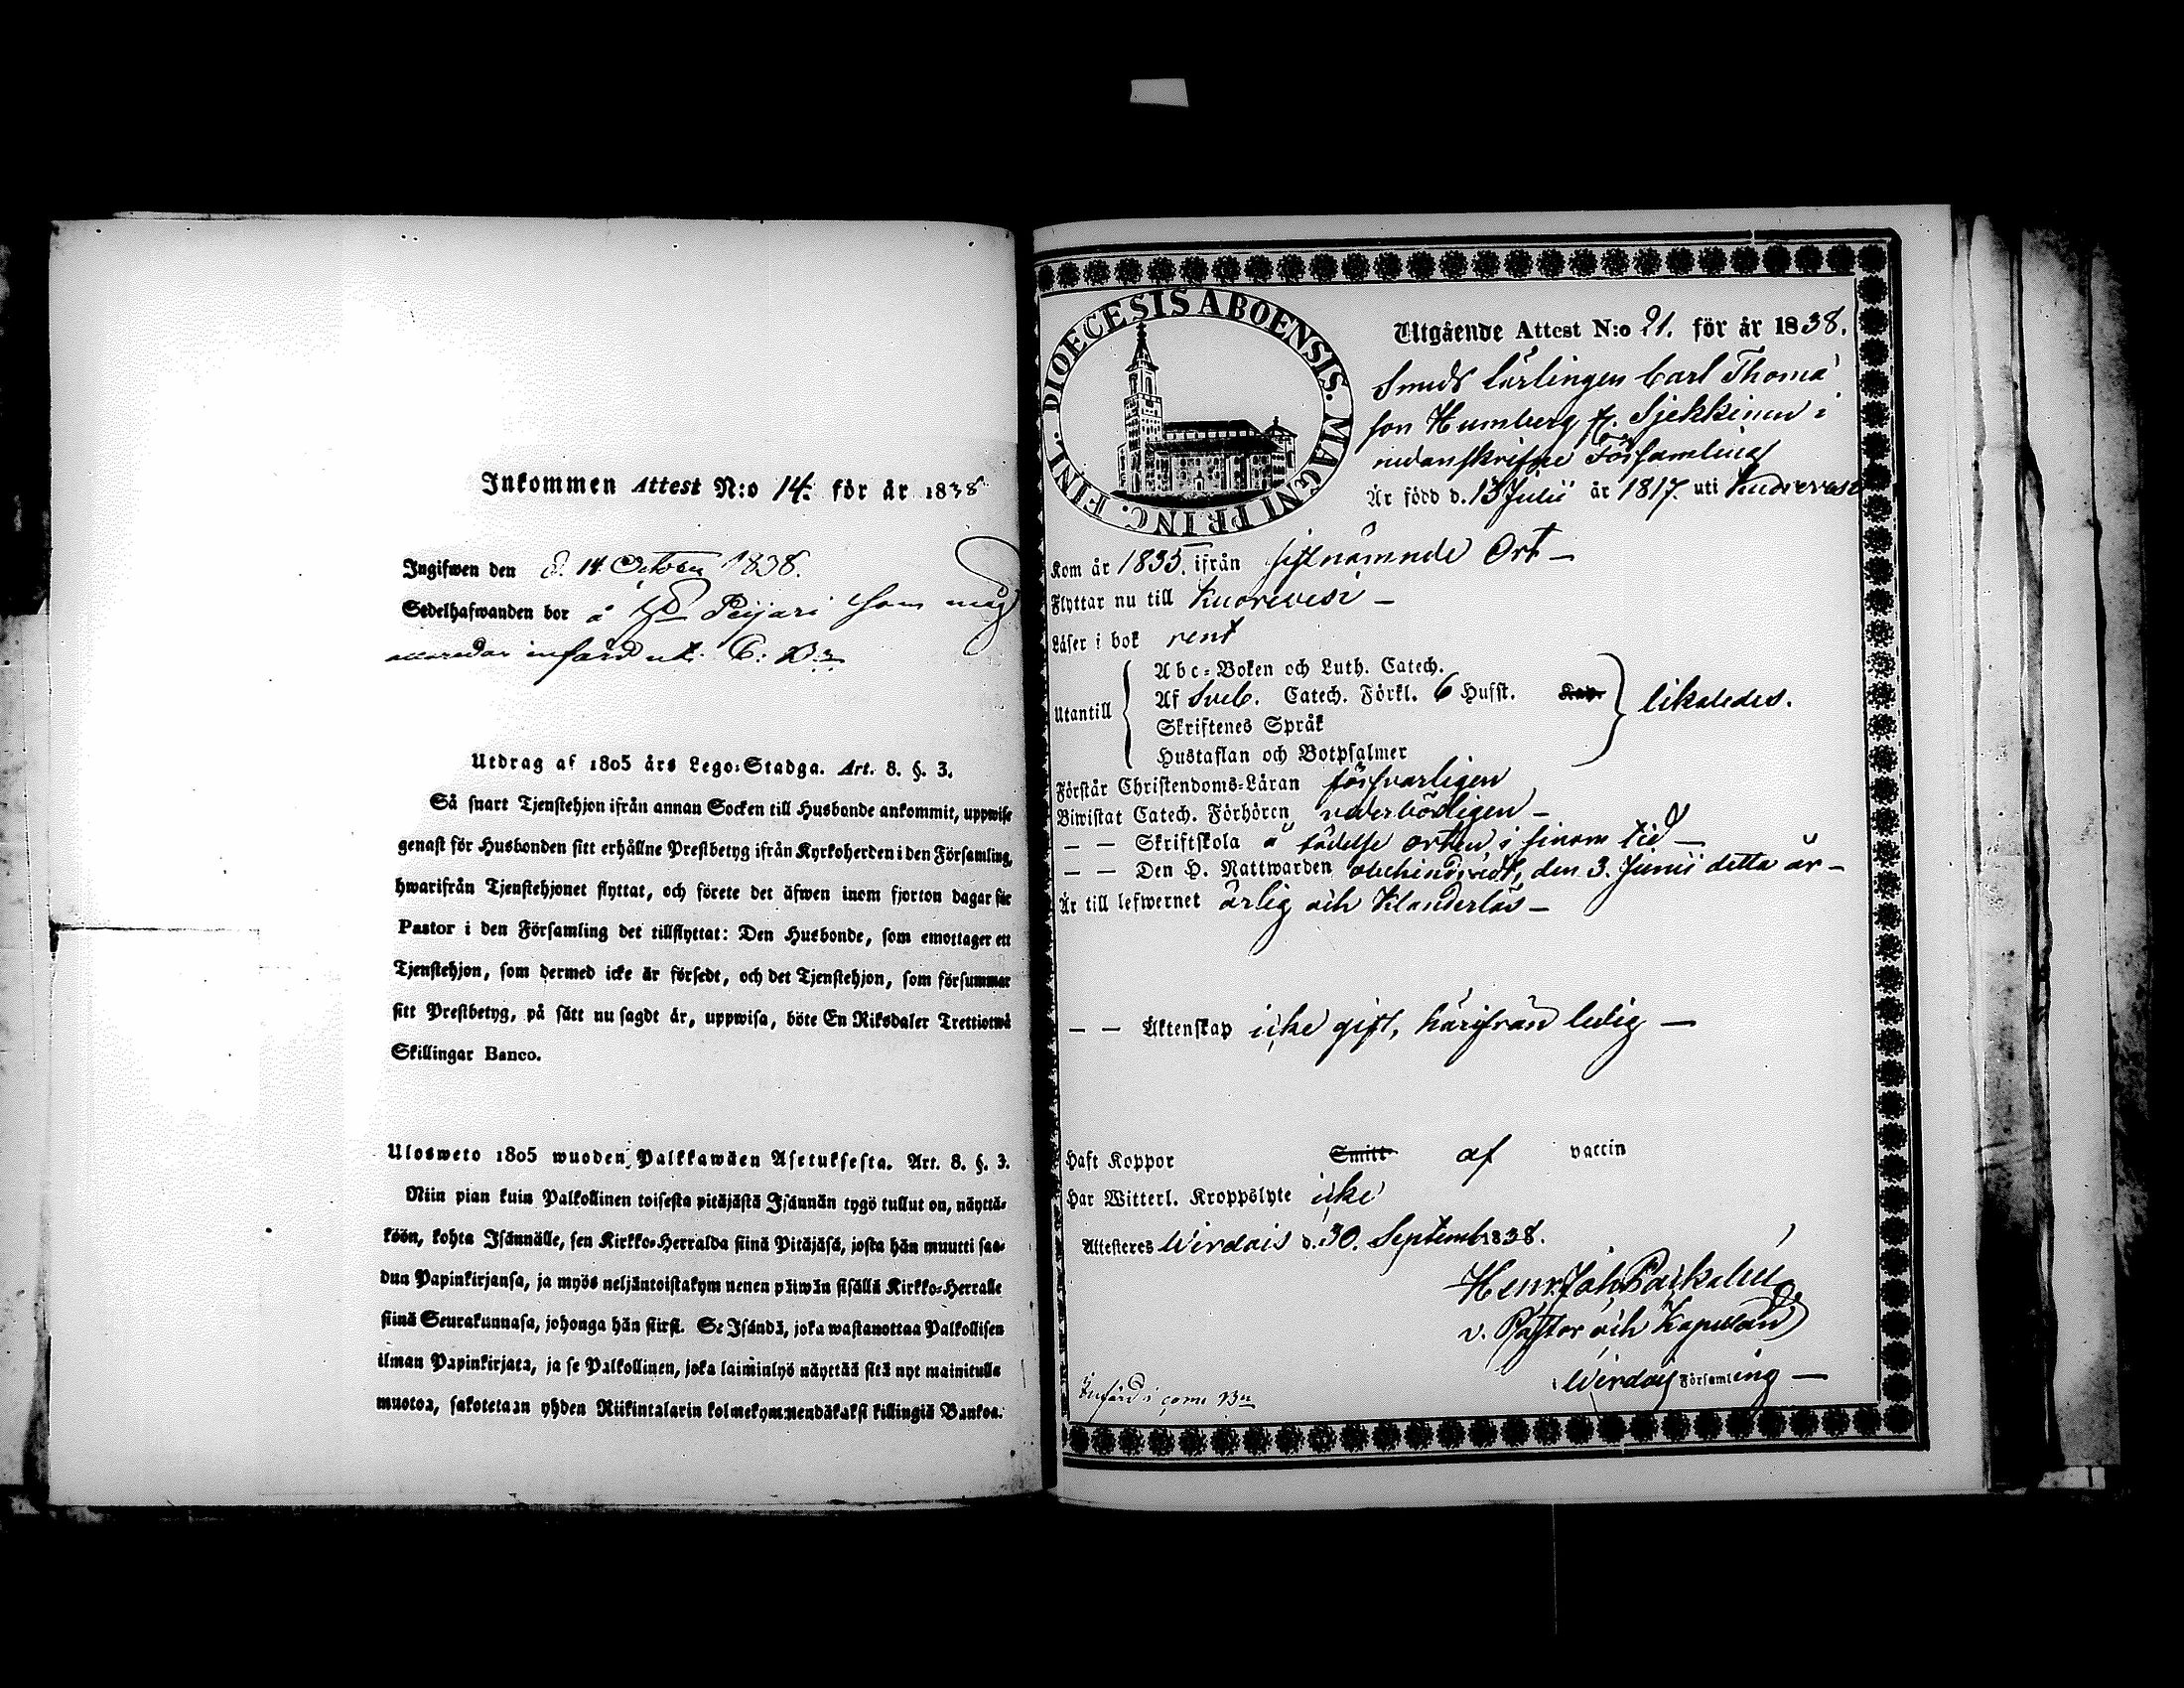 Inkommen Attest N:o 14. för år 1838
Ingifwen den d. 14 October 1838.
Sedelhafwanden bor å Peijari som
införd uti C. B.
Utdrag af 1805 års Lego-Stadga. Art. 8. §. 3.
Så snart Tjenstehjon ifrån annan Socken till Husbonde ankommit, uppwise
genast för Husbonden sitt erhållne Prestbetyg ifrån Kyrkoherden i den Församling,
hwarifrån Tjenstehjonet flyttat, och förete det äfwen inom fjorton dagar för
Pastor i den Församling det tillflyttat: Den Husbonde, som emottager ett
Tjenstehjon, som dermed icke är försedt, och det Tjenstehjon, som försummar
sitt Prestbetyg, på sätt nu sagdt är, uppwisa, böte En Riksdaler Trettiotwå
Skillingar Banco.
Ulosweto 1805 wuoden Palkkawäen Asetuksesta. Art. 8. §. 3.
Niin pian kuin Palkollinen toisesta pitäjästä Isännän tygö tullut on, näyttä-
köön, kohta Isännälle, sen Kirkko-Herralda siinä Pitäjäsä, josta hän muutti saa-
dun Papinkirjansa, ja myös neljäntoistakym nenen päiwän sisällä Kirkko-Herralle
siinä Seurakunnasa, johonga hän siirsi. Se Isändä, joka wastanottaa Palkollisen
ilman Papinkirjata, ja se Palkollinen, joka laiminlyö näyttää sitä nyt mainitulla
muotoa, sakotetaan yhden Riikintalarin kolmekymmendäkaksi killingiä Bankoa.
DIOECESIS ABOENSIS. MAGNI PRINC. FINL.
Utgående Attest N:o 21. för år 1838.
Smeds lärlingen Carl Thomä
son Humberg fr. Sjekkinen i
nedanskrifne Församling
Är född d. 13 Julii år 1817. uti Kuorevesi
Kom år 1835. ifrån sistnämnde Ort —
Flyttar nu till Kuorevesi —
Läser i bok rent
Abc-Boken och Luth. Catech.
Af Sveb. Catech. Förkl. 6 Hufst. Kap.
Utantill likaledes.
Skriftenes Språk
Hustaflan och Botpsalmer
Förstår Christendoms-Läran försvarligen
Biwistat Catech. Förhören vederbörligen —
— — Skriftskola å födelse orten i sinom tid —
— — Den H. Nattwarden obehindradt, den 3. Junii detta år —
Är till lefwernet ärlig och klanderlös —
— — Äktenskap icke gift, härifrån ledig —
Haft Koppor Smitt af vaccin
Har Witterl. Kroppslyte icke
Attesteres Wirdois d. 30. Septemb 1838.
Henr. Joh.
v. Pastor och Kapellan
i Wirdois Församling —
Införd i Com. Bn